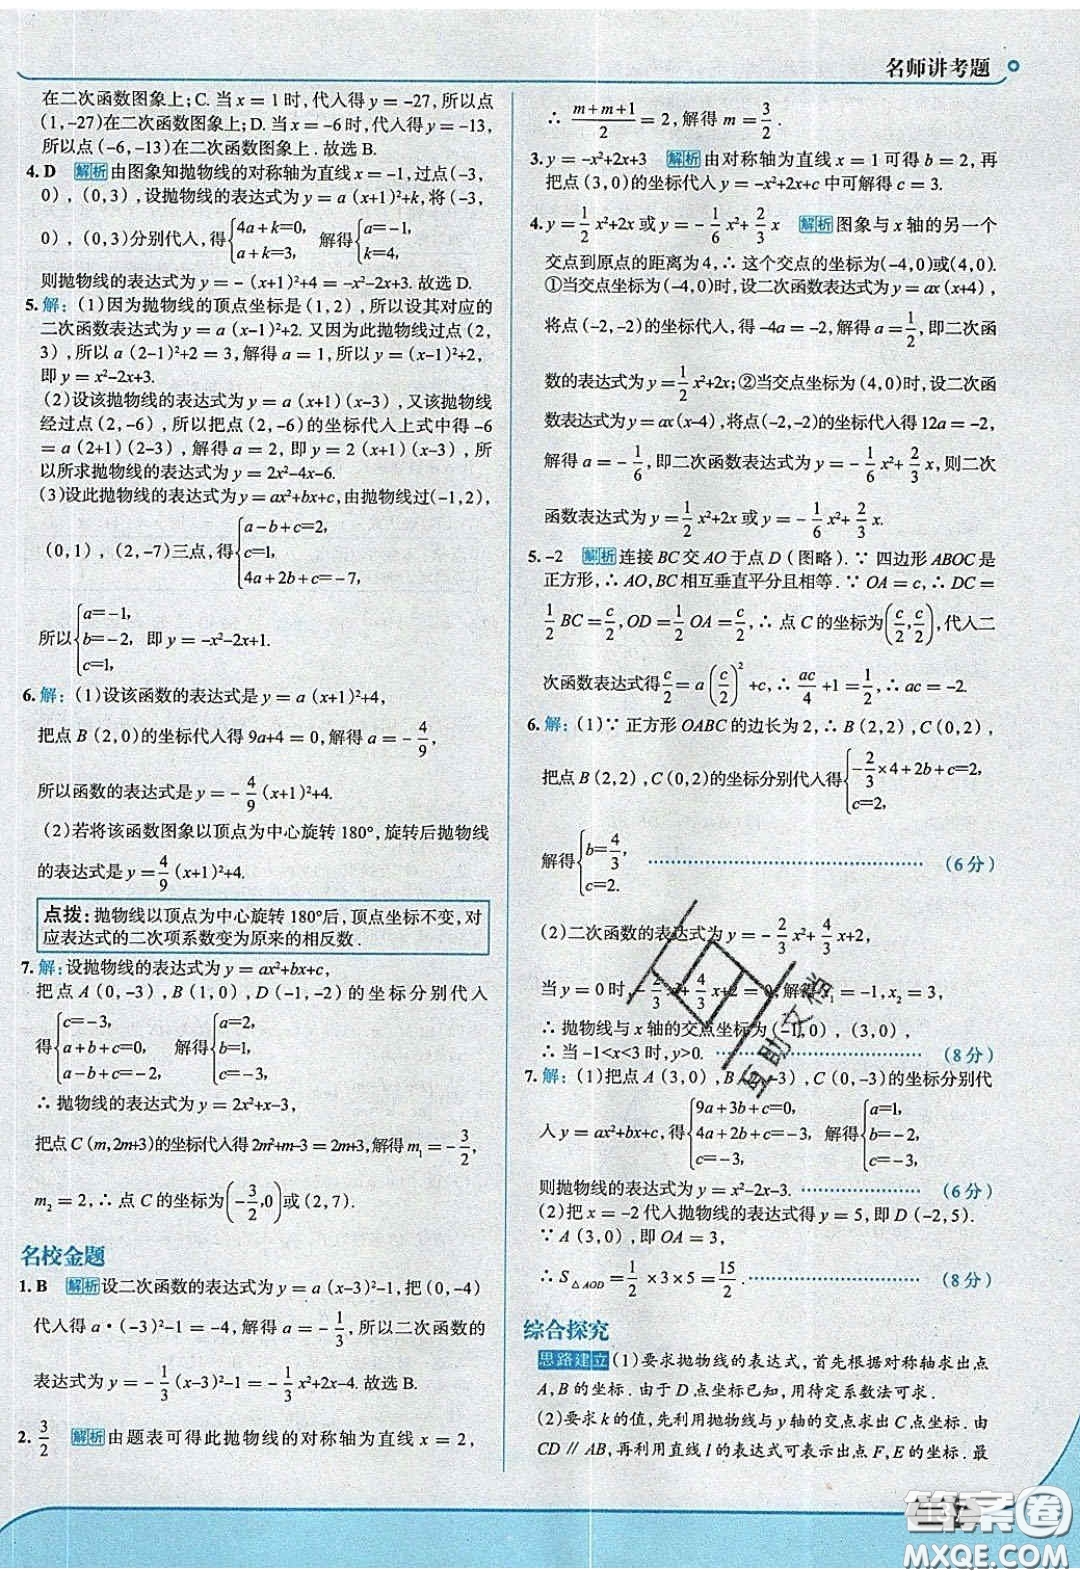 名师讲考题
在二次函数图象上;C. 当 x = 1 时,代入得 y = -27, 所以点
(1,-27)在二次函数图象上;D. 当 x = -6 时,代入得 y = -13,
所以点(-6,-13)在二次函数图象上.故选 B.
4. D 解析 由图象知抛物线的对称轴为直线 x = -1,过点(-3,
0),(0,3),设抛物线的表达式为 y = a(x+1)²+k,将(-3,
0),(0,3)分别代入,得{4a+k=0, a+k=3, 解得{a=-1, k=4,
则抛物线的表达式为 y = -(x+1)²+4 = -x²-2x+3. 故选 D.
5. 解:(1)因为抛物线的顶点坐标是(1,2),所以设其对应的
二次函数表达式为 y = a(x-1)²+2. 又因为此抛物线过点(2,
3),所以 a(2-1)²+2 = 3,解得 a = 1,所以 y = (x-1)²+2,
即 y = x²-2x+3.
(2)设该抛物线的表达式为 y = a(x+1)(x-3),又该抛物线
经过点(2,-6),所以把点(2,-6)的坐标代入上式中得 -6
= a(2+1)(2-3),解得 a = 2,即 y = 2(x+1)(x-3),所
以所求抛物线的表达式为 y = 2x²-4x-6.
(3)设此抛物线的表达式为 y = ax²+bx+c,由抛物线过(-1,2),
(0,1),(2,-7)三点,得{a-b+c=2, c=1, 4a+2b+c=-7,
所以{a=-1, b=-2, c=1, 即 y = -x²-2x+1.
6. 解:(1)设该函数的表达式是 y = a(x+1)²+4,
把点 B(2,0)的坐标代入得 9a+4 = 0,解得 a = -4/9,
所以函数的表达式是 y = -4/9(x+1)²+4.
(2)若将该函数图象以顶点为中心旋转 180°,旋转后抛物线
的表达式是 y = 4/9(x+1)²+4.
点拨:抛物线以顶点为中心旋转 180°后,顶点坐标不变,对
应表达式的二次项系数变为原来的相反数.
7. 解:设抛物线的表达式为 y = ax²+bx+c,
把点 A(0,-3),B(1,0),D(-1,-2)的坐标分别代入
得{c=-3, a+b+c=0, a-b+c=-2, 解得{a=2, b=1, c=-3,
∴ 抛物线的表达式为 y = 2x²+x-3,
把点 C(m,2m+3)的坐标代入得 2m²+m-3 = 2m+3,解得 m₁ = -3/2,
m₂ = 2,∴ 点 C 的坐标为(-3/2,0)或(2,7).
名校金题
1. B 解析 设二次函数的表达式为 y = a(x-3)²-1,把(0,-4)
代入得 a·(-3)²-1 = -4,解得 a = -1/3,所以二次函数的
表达式为 y = -1/3(x-3)²-1 = -1/3x²+2x-4. 故选 B.
2. 3/2 解析 由题表可得此抛物线的对称轴为直线 x = 2,
∴ (m+m+1)/2 = 2,解得 m = 3/2.
3. y = -x²+2x+3 解析 由对称轴为直线 x = 1 可得 b = 2,再
把点(3,0)的坐标代入 y = -x²+2x+c 中可解得 c = 3.
4. y = 1/2x²+2x 或 y = -1/6x²+2/3x 解析 图象与 x 轴的另一个
交点到原点的距离为 4,∴ 这个交点的坐标为(-4,0)或(4,0).
①当交点坐标为(-4,0)时,设二次函数表达式为 y = ax(x+4),
将点(-2,-2)的坐标代入,得 -4a = -2,解得 a = 1/2,即二次函
数的表达式为 y = 1/2x²+2x;②当交点坐标为(4,0)时,设二次函
数表达式为 y = ax(x-4),将点(-2,-2)的坐标代入得 12a = -2,
解得 a = -1/6,即二次函数表达式为 y = -1/6x²+2/3x,则二次
函数表达式为 y = 1/2x²+2x 或 y = -1/6x²+2/3x.
5. -2 解析 连接 BC 交 AO 于点 D(图略). ∵ 四边形 ABOC 是
正方形,∴ AO,BC 相互垂直平分且相等. ∵ OA = c,∴ DC =
1/2 BC = c/2,OD = 1/2 OA = c/2,∴ 点 C 的坐标为(c/2,c/2),代入二
次函数表达式得 c/2 = a(c/2)²+c,∴ ac/4+1 = 1/2,∴ ac = -2.
6. 解:(1)∵ 正方形 OABC 的边长为 2,∴ B(2,2),C(0,2),
把点 B(2,2),C(0,2)的坐标分别代入得{-2/3×4+2b+c=2, c=2,
解得{b=4/3, c=2. ……(6分)
(2)二次函数的表达式为 y = -2/3x²+4/3x+2,
当 y = 0 时,-2/3x²+4/3x+2 = 0,解得 x₁ = -1,x₂ = 3,
∴ 抛物线与 x 轴的交点坐标为(-1,0),(3,0),
∴ 当 -1<x<3 时,y>0. ……(8分)
7. 解:(1)把点 A(3,0),B(2,-3),C(0,-3)的坐标分别代
入 y = ax²+bx+c,得{9a+3b+c=0, 4a+2b+c=-3, c=-3, 解得{a=1, b=-2, c=-3,
则抛物线的表达式为 y = x²-2x-3. ……(6分)
(2)把 x = -2 代入抛物线的表达式得 y = 5,即 D(-2,5).
∵ A(3,0),即 OA = 3,
∴ S△AOD = 1/2 ×3×5 = 15/2. ……(8分)
综合探究
思路建立 (1)要求抛物线的表达式,首先根据对称轴求出点
A,B 的坐标. 由于 D 点坐标已知,用待定系数法可求.
(2)要求 k 的值,先利用抛物线与 y 轴的交点求出 C 点坐标. 由
CD∥AB,再利用直线 l 的表达式可表示出点 F,E 的坐标. 最
互助文档
答案圈
MXQE.COM